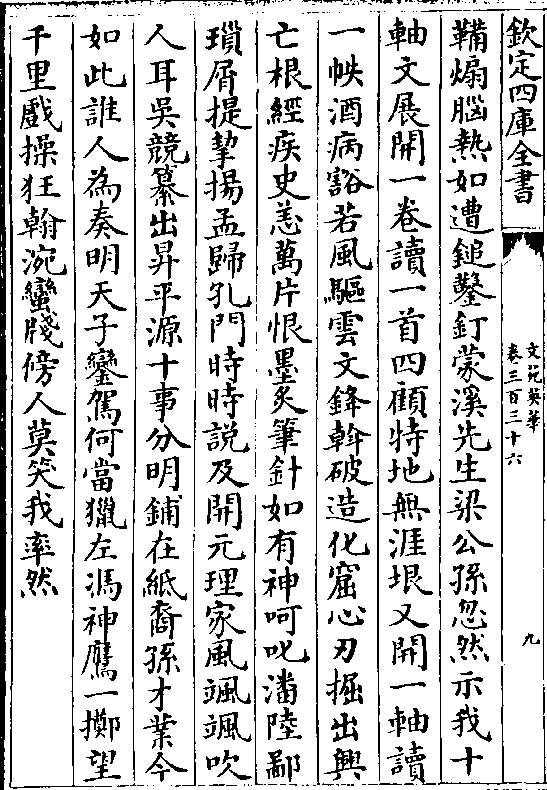 欽定四庫全書
文苑英華
卷三百三十六
九
鞴煽腦熱如遭鎚鑿釘蒙溪先生梁公孫忽然示我十
軸文展開一卷讀一首四顧特地無涯垠又開一軸讀
一帙酒病豁若風驅雲文鋒斡破造化窟心刃掘出興
亡根經疾史恙萬片恨墨炙筆針如有神呵叱潘陸鄙
瑣屑提挈揚孟歸孔門時時説及開元理家風颯颯吹
人耳吳競纂出昇平源十事分明鋪在紙裔孫才業今
如此誰人為奏明天子鑾駕何當獵左馮神鷹一擲望
千里戲操狂翰涴蠻牋傍人莫笑我率然